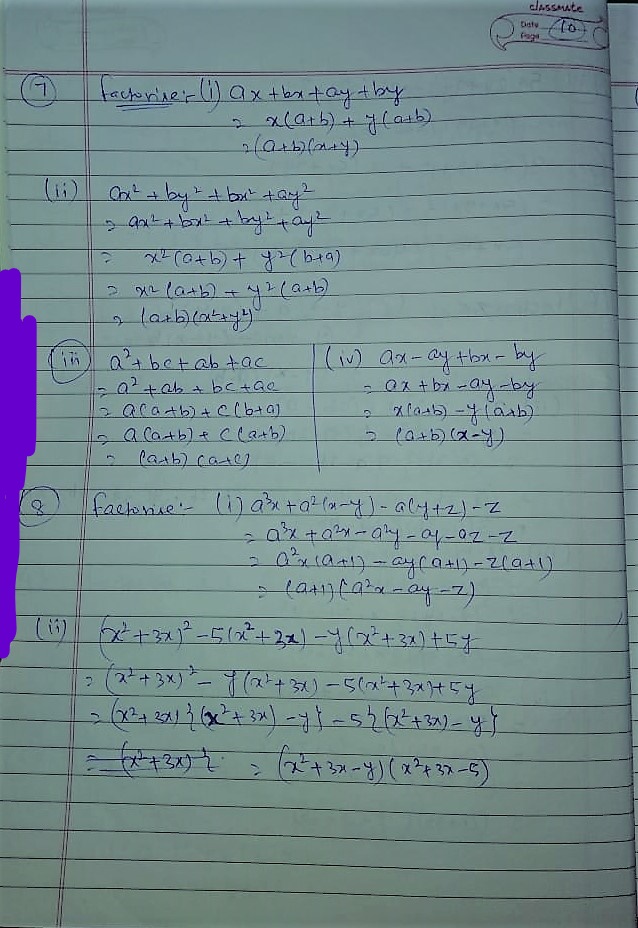 classmate
Date
Page 10
7 Factorise:- (i) ax + bx + ay + by
= x(a+b) + y(a+b)
= (a+b)(x+y)
(ii) ax² + by² + bx² + ay²
= ax² + bx² + by² + ay²
= x²(a+b) + y²(b+a)
= x²(a+b) + y²(a+b)
= (a+b)(x²+y²)
(iii) a² + bc + ab + ac
= a² + ab + bc + ac
= a(a+b) + c(b+a)
= a(a+b) + c(a+b)
= (a+b)(a+c)
(iv) ax - ay + bx - by
= ax + bx - ay - by
= x(a+b) - y(a+b)
= (a+b)(x-y)
8 Factorise:- (i) a³x + a²(x-y) - a(y+z) - z
= a³x + a²x - a²y - ay - az - z
= a²x(a+1) - ay(a+1) - z(a+1)
= (a+1)(a²x - ay - z)
(ii) (x²+3x)² - 5(x²+3x) - y(x²+3x) + 5y
= (x²+3x)² - y(x²+3x) - 5(x²+3x) + 5y
= (x²+3x){(x²+3x) - y} - 5{(x²+3x) - y}
= (x²+3x){ = (x²+3x-y)(x²+3x-5)